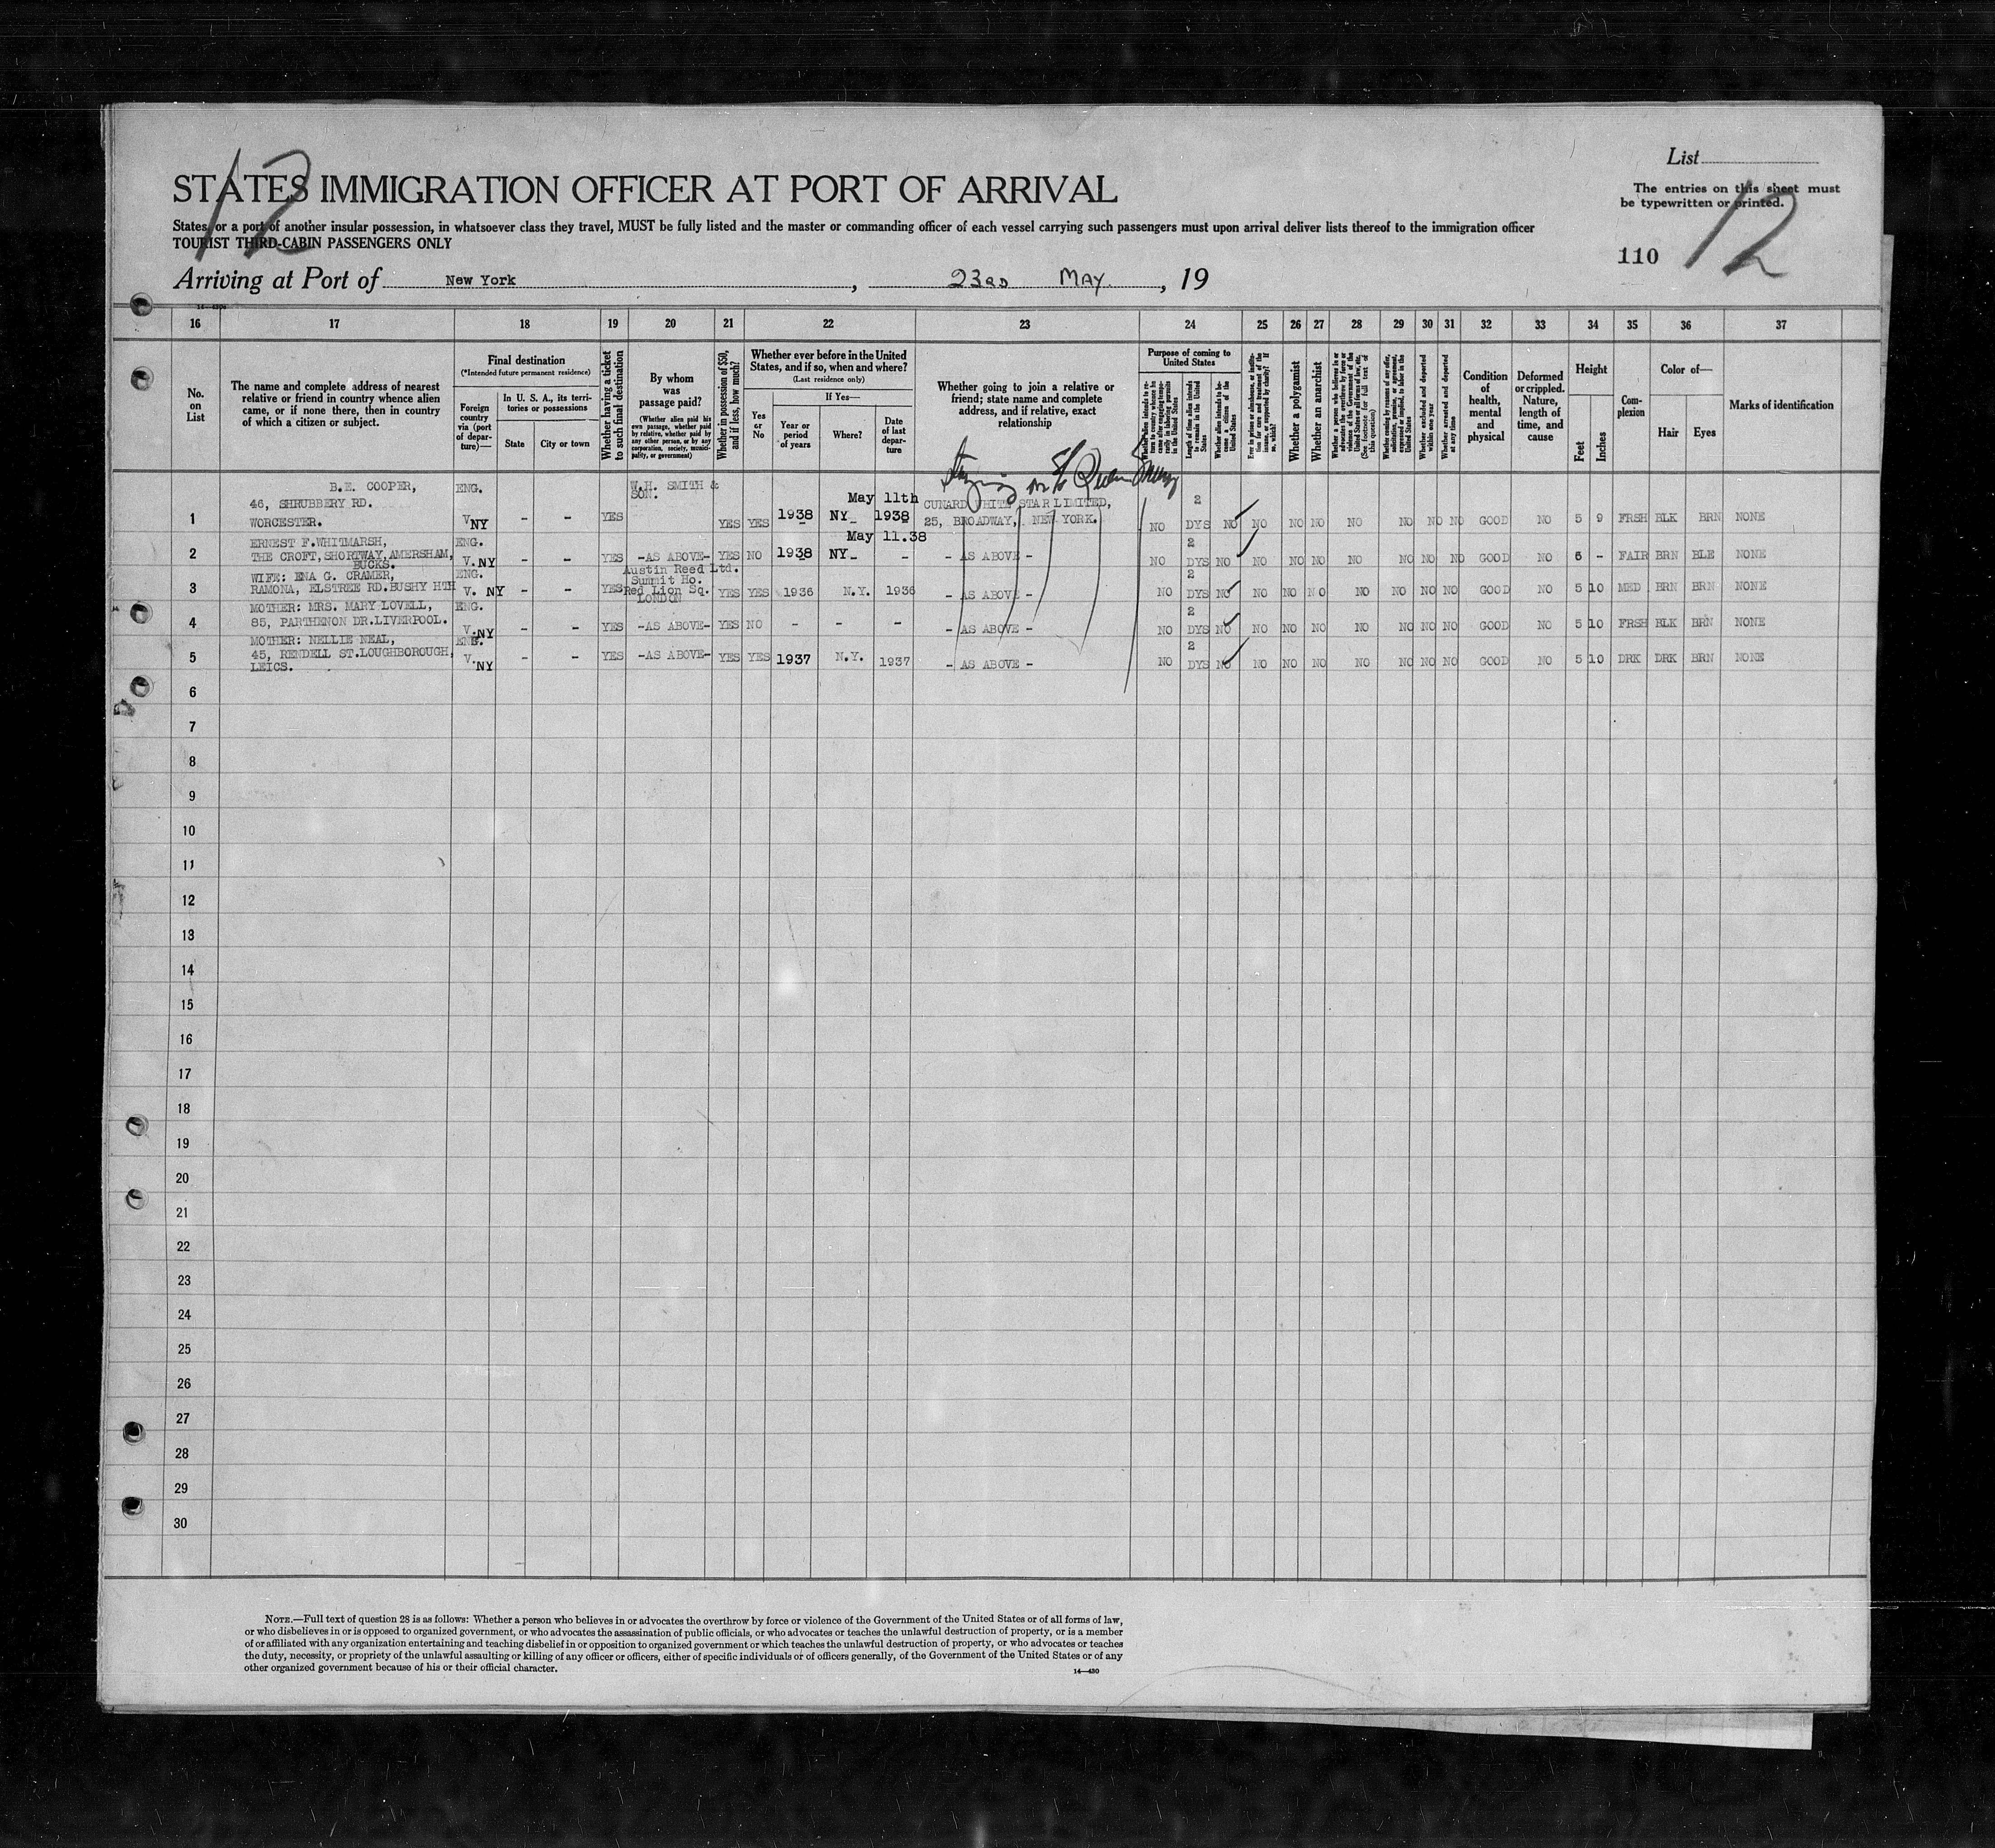 12
STATES IMMIGRATION OFFICER AT PORT OF ARRIVAL
List
The entries on this sheet must
be typewritten or printed.
12
States, or a port of another insular possession, in whatsoever class they travel, MUST be fully listed and the master or commanding officer of each vessel carrying such passengers must upon arrival deliver lists thereof to the immigration officer
TOURIST THIRD-CABIN PASSENGERS ONLY
110
Arriving at Port of New York, 23RD MAY, 19
16 17 18 19 20 21 22 23 24 25 26 27 28 29 30 31 32 33 34 35 36 37
No. on List
The name and complete address of nearest
relative or friend in country whence alien
came, or if none there, then in country
of which a citizen or subject.
Final destination
(*Intended future permanent residence)
Foreign country via (port of departure)—
In U. S. A., its territories or possessions
State
City or town
Whether having a ticket to such final destination
By whom was passage paid?
(Whether alien paid his own passage, whether paid by relative, whether paid by any other person, or by any corporation, society, municipality, or government)
Whether in possession of $50, and if less, how much?
Whether ever before in the United
States, and if so, when and where?
(Last residence only)
Yes or No
If Yes—
Year or period of years
Where?
Date of last departure
Whether going to join a relative or
friend; state name and complete
address, and if relative, exact
relationship
Purpose of coming to
United States
Length of time alien intends to remain in the United States
Whether alien intends to become a citizen of the United States
Whether a polygamist
Whether an anarchist
(See footnote for full text of this question)
Whether excluded and deported within one year
Whether arrested and deported at any time
Condition of health, mental and physical
Deformed or crippled. Nature, length of time, and cause
Height
Feet
Inches
Complexion
Color of—
Hair
Eyes
Marks of identification
1 B.E. COOPER, 46, SHRUBBERY RD. WORCESTER. ENG. V NY - - YES W.H. SMITH & SON. YES YES 1938 NY May 11th 1938 CUNARD WHITE STAR LIMITED, 25, BROADWAY, NEW YORK. NO 2 DYS NO NO NO NO NO NO NO NO GOOD NO 5 9 FRSH BLK BRN NONE
2 ERNEST F.WHITMARSH, THE CROFT,SHORTWAY,AMERSHAM, BUCKS. ENG. V. NY - - YES -AS ABOVE- YES NO 1938 NY May 11.38 - - AS ABOVE - NO 2 DYS NO NO NO NO NO NO NO NO GOOD NO 6 - FAIR BRN BLE NONE
3 WIFE: ENA G. CRAMER, RAMONA, ELSTREE RD.BUSHY HTH ENG. V. NY - - YES Austin Reed Ltd. Summit Ho. Red Lion Sq. LONDON YES YES 1936 N.Y. 1936 - AS ABOVE - NO 2 DYS NO NO NO NO NO NO NO NO GOOD NO 5 10 MED BRN BRN NONE
4 MOTHER: MRS. MARY LOVELL, 85, PARTHENON DR.LIVERPOOL. ENG. V. NY - - YES -AS ABOVE- YES NO - - - - AS ABOVE - NO 2 DYS NO NO NO NO NO NO NO NO GOOD NO 5 10 FRSH BLK BRN NONE
5 MOTHER: NELLIE NEAL, 45, RENDELL ST.LOUGHBOROUGH, LEICS. ENG. V. NY - - YES -AS ABOVE- YES YES 1937 N.Y. 1937 - AS ABOVE - NO 2 DYS NO NO NO NO NO NO NO NO GOOD NO 5 10 DRK DRK BRN NONE
6
7
8
9
10
11
12
13
14
15
16
17
18
19
20
21
22
23
24
25
26
27
28
29
30
NOTE.—Full text of question 28 is as follows: Whether a person who believes in or advocates the overthrow by force or violence of the Government of the United States or of all forms of law,
or who disbelieves in or is opposed to organized government, or who advocates the assassination of public officials, or who advocates or teaches the unlawful destruction of property, or is a member
of or affiliated with any organization entertaining and teaching disbelief in or opposition to organized government or which teaches the unlawful destruction of property, or who advocates or teaches
the duty, necessity, or propriety of the unlawful assaulting or killing of any officer or officers, either of specific individuals or of officers generally, of the Government of the United States or of any
other organized government because of his or their official character.
14—430